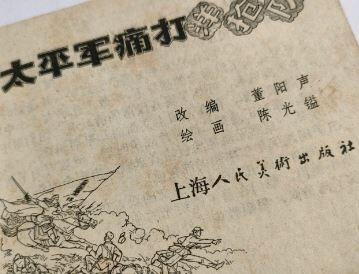 太平军痛打洋枪队
改编 董阳声
绘画 陈光镒
上海人民美術出版社